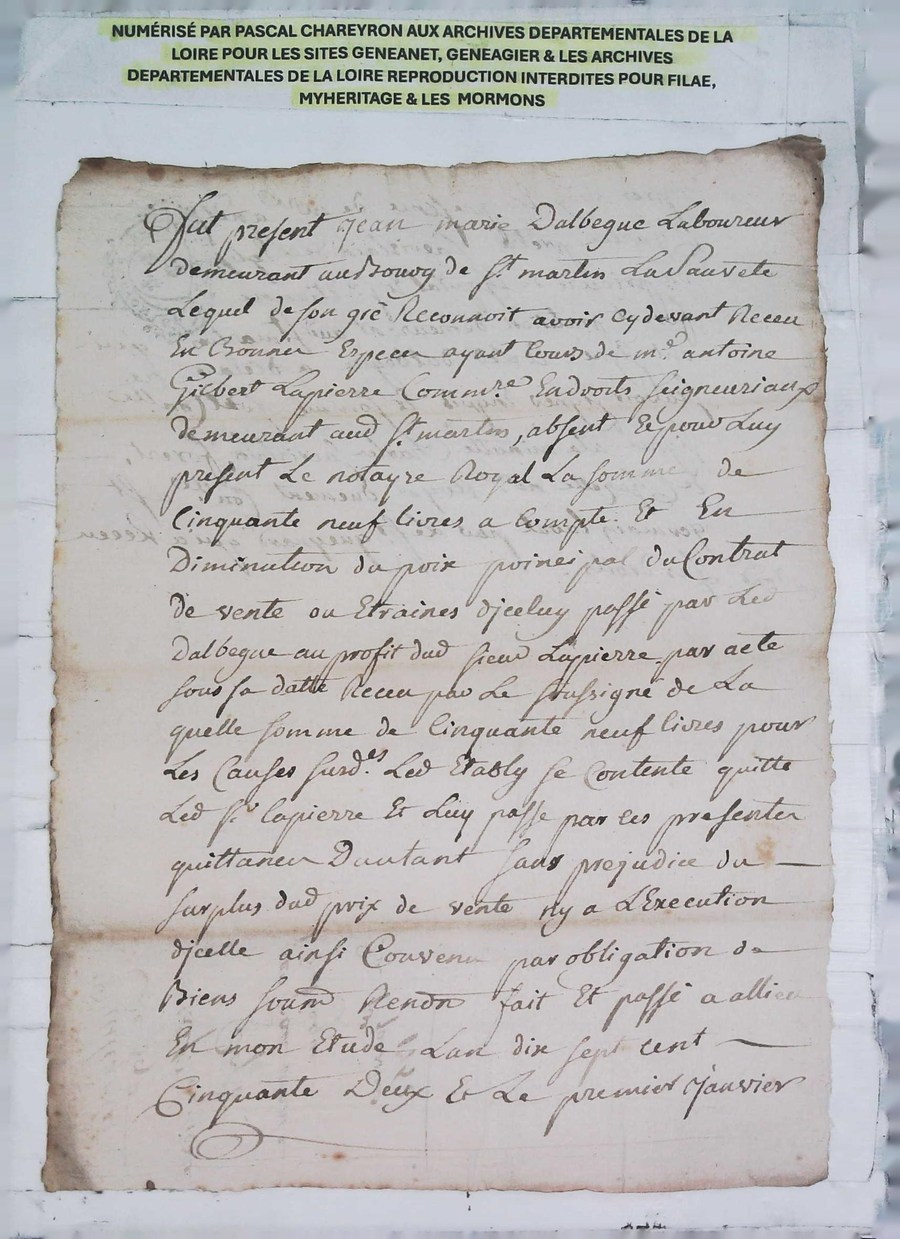 NUMÉRISÉ PAR PASCAL CHAREYRON AUX ARCHIVES DEPARTEMENTALES DE LA
LOIRE POUR LES SITES GENEANET, GENEAGIER & LES ARCHIVES
DEPARTEMENTALES DE LA LOIRE REPRODUCTION INTERDITES POUR FILAE,
MYHERITAGE & LES MORMONS
Fut present Jean marie Dalbegue Laboureur
demeurant au Bourg de St martin La Sauveté
Lequel de son gré Reconnoit avoir cydevant Receu
En Bonnes Especes ayant Cours de me. antoine
Gilbert Lapierre Commre. Endroits seigneuriaux
demeurant aud St. martin, absent Et pour Luy
present Le notayre Royal La somme de
Cinquante neuf livres a Compte Et En
Diminution du prix principal du Contrat
de vente ou Etraines dicelluy passé par Led
Dalbegue au profit dud sieur Lapierre par acte
sous sa datte Receu par Le soussigné de La
quelle somme de Cinquante neuf livres pour
Les Causes surd.es Led Etably se Contente quitte
Led Sr Lapierre Et Luy passe par ces presentes
quittances Dautant sans prejudice du
surplus dud prix de vente ny a LExecution
dicelle ainsi Convenu par obligation de
Biens soumd Renon fait Et passé a allieu
En mon Etude Lan dix sept cent
Cinquante Deux Et Le premier Janvier